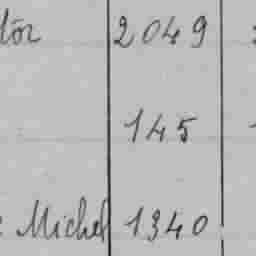 tör 2049
145
Michel 1340